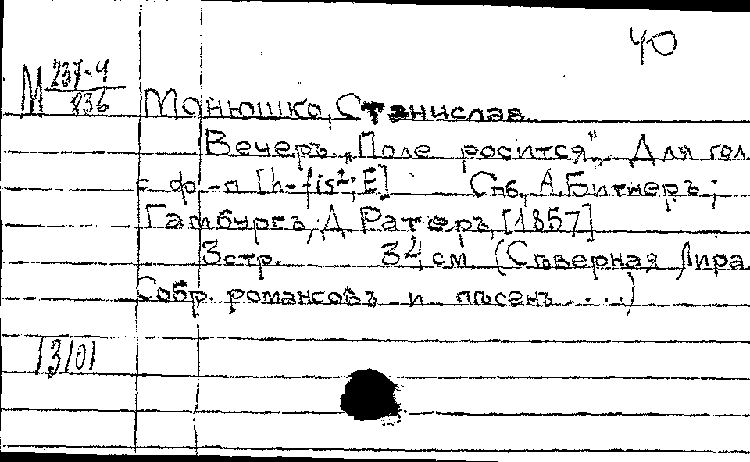 40
М 237-4/836
Монюшко, Станислав
Вечеръ „Поле росится". Для гол.
с ф-п [h-fis²; E] Спб, А. Битнеръ;
Гамбургъ, Д. Ратеръ, [1857]
3 стр. 34 см (Съверная Лира
Собр. романсовъ и пъсенъ ...)
13101